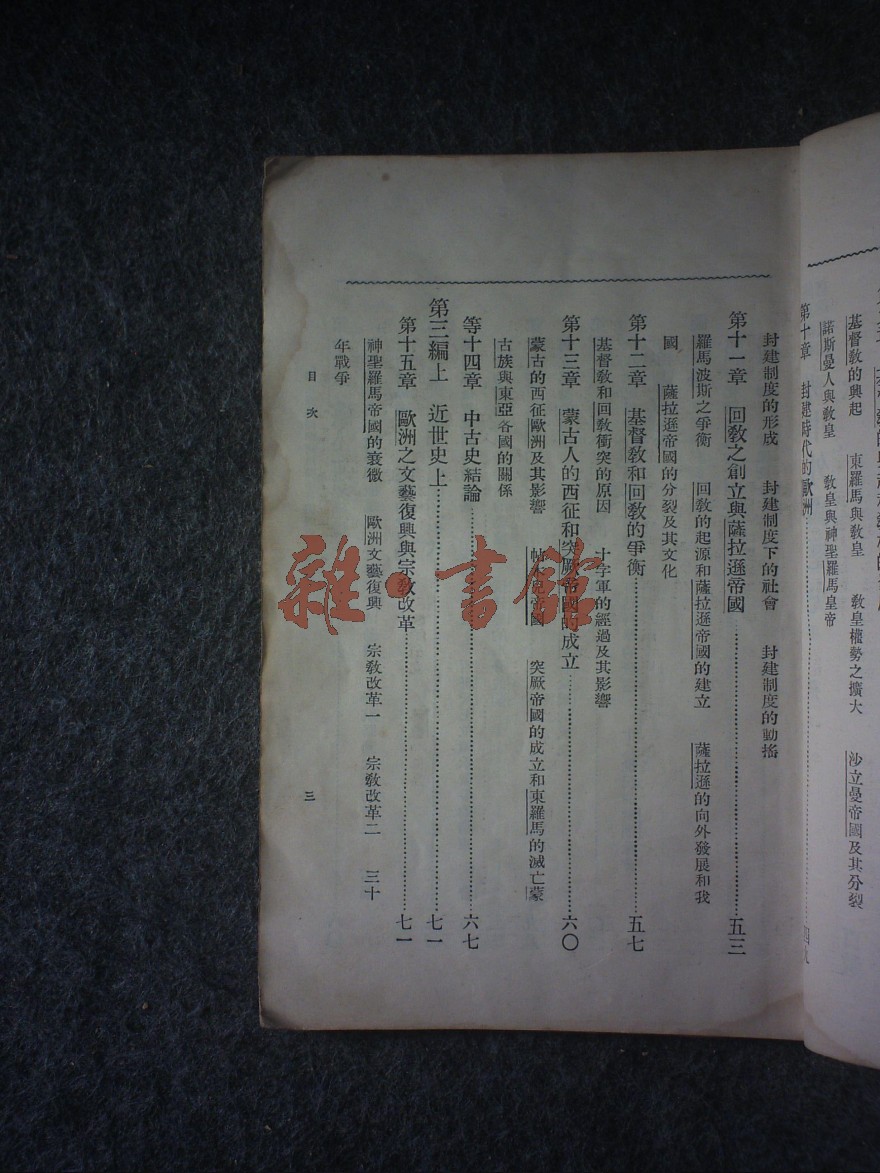 基督敎的興起　東羅馬與敎皇　敎皇權勢之擴大　沙立曼帝國及其分裂
諾斯曼人與敎皇　敎皇與神聖羅馬皇帝
第十章　封建時代的歐洲
封建制度的形成　封建制度下的社會　封建制度的動搖
第十一章　回敎之創立與薩拉遜帝國……五三
羅馬波斯之爭衡　回敎的起源和薩拉遜帝國的建立　薩拉遜的向外發展和我
國　薩拉遜帝國的分裂及其文化
第十二章　基督敎和回敎的爭衡……五七
基督敎和回敎衝突的原因　十字軍的經過及其影響
第十三章　蒙古人的西征和突厥帝國的成立……六〇
蒙古的西征歐洲及其影響　帖木兒帝國　突厥帝國的成立和東羅馬的滅亡蒙
古族與東亞各國的關係
等十四章　中古史結論……六七
第三編上　近世史上……七一
第十五章　歐洲之文藝復興與宗敎改革……七一
神聖羅馬帝國的衰微　歐洲文藝復興　宗敎改革一　宗敎改革二　三十
年戰爭
目次
三
雜·書館